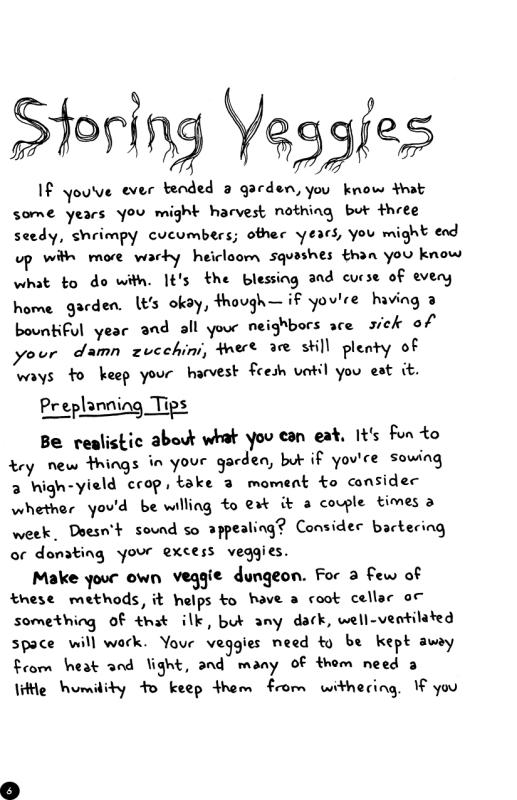 Storing Veggies
If you've ever tended a garden, you know that
some years you might harvest nothing but three
seedy, shrimpy cucumbers; other years, you might end
up with more warty heirloom squashes than you know
what to do with. It's the blessing and curse of every
home garden. It's okay, though—if you're having a
bountiful year and all your neighbors are sick of
your damn zucchini, there are still plenty of
ways to keep your harvest fresh until you eat it.
Preplanning Tips
Be realistic about what you can eat. It's fun to
try new things in your garden, but if you're sowing
a high-yield crop, take a moment to consider
whether you'd be willing to eat it a couple times a
week. Doesn't sound so appealing? Consider bartering
or donating your excess veggies.
Make your own veggie dungeon. For a few of
these methods, it helps to have a root cellar or
something of that ilk, but any dark, well-ventilated
space will work. Your veggies need to be kept away
from heat and light, and many of them need a
little humidity to keep them from withering. If you
6